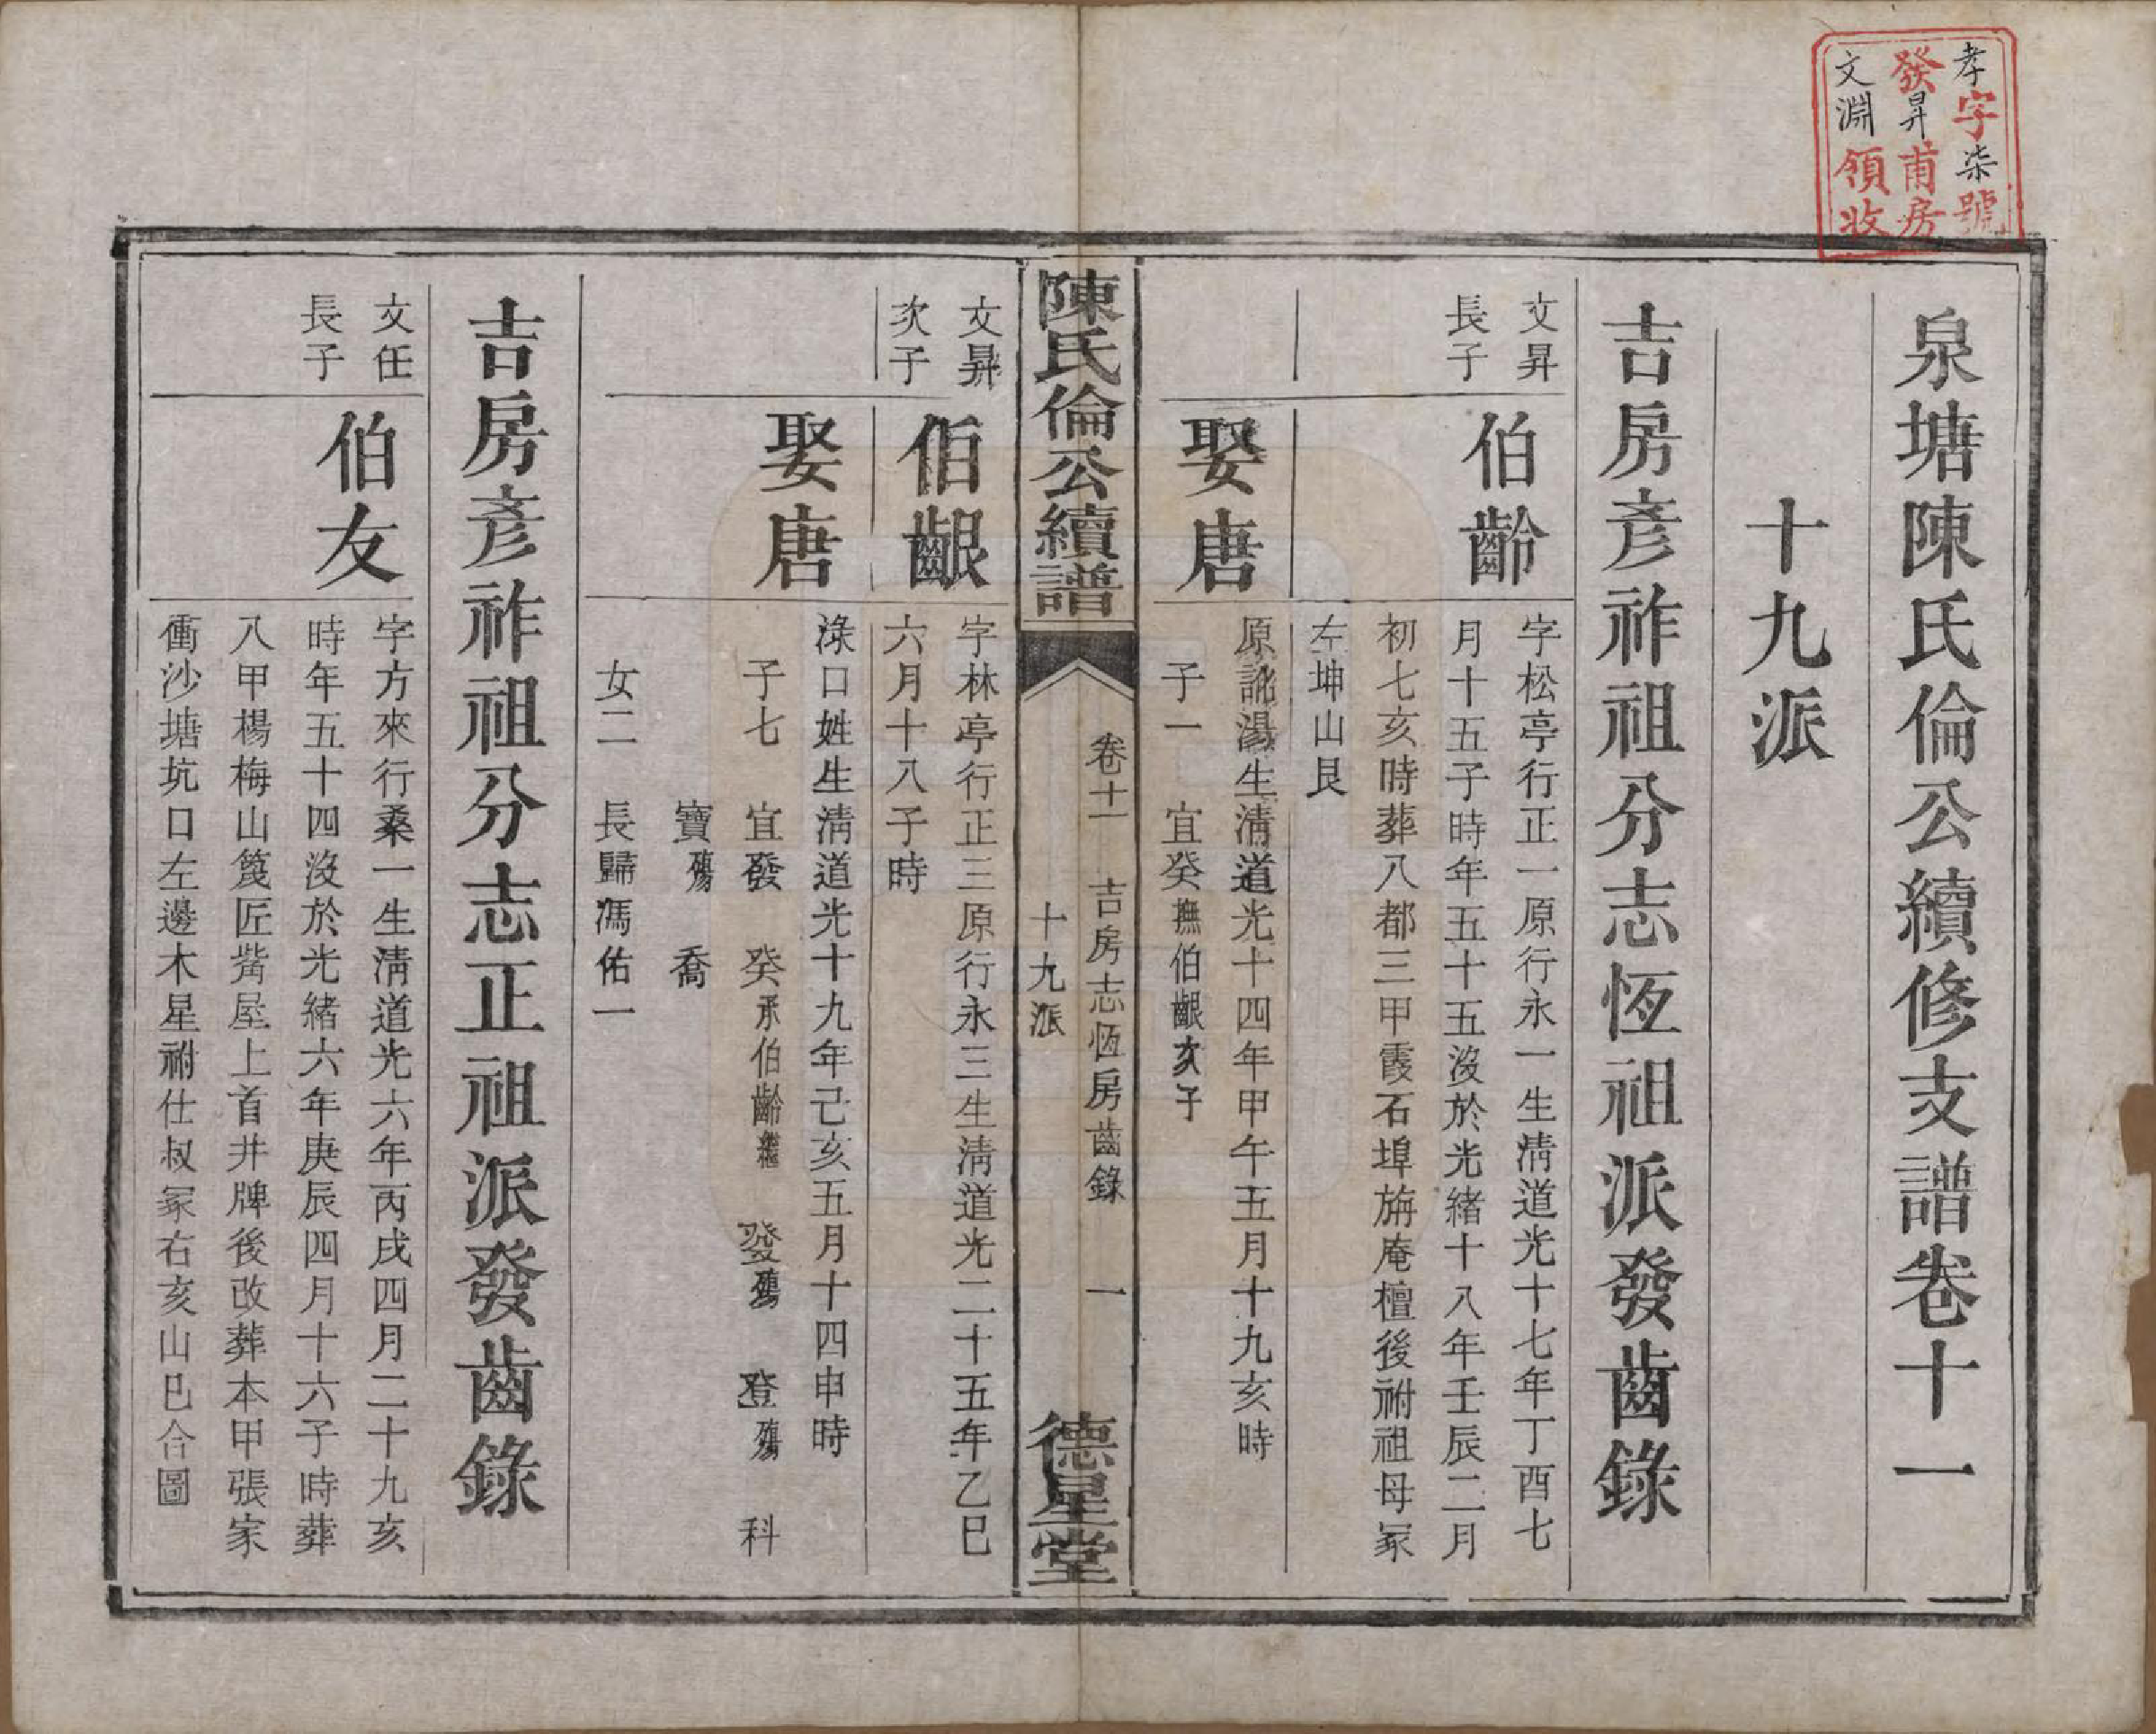 孝字柒號
發昇甫房
文淵領收
泉塘陳氏倫公續修支譜卷十一
十九派
吉房彥祚祖分志恆祖派發齒錄
文昇
長子
伯齡
字松亭行正一原行永一生淸道光十七年丁酉七
月十五子時年五十五沒於光緒十八年壬辰二月
初七亥時葬八都三甲霞石埠旃庵檀後祔祖母冢
左坤山艮
娶唐
原訛湯生淸道光十四年甲午五月十九亥時
子一 宜癸撫伯齦次子
陳氏倫公續譜
卷十一 吉房志恆房齒錄 一
十九派
德星堂
文昇
次子
伯齦
字林亭行正三原行永三生淸道光二十五年乙巳
六月十八子時
娶唐
淥口姓生淸道光十九年己亥五月十四申時
子七 宜發 癸承伯齡繼 發殤 登殤 科
寶殤 喬
女二 長歸馮佑一
吉房彥祚祖分志正祖派發齒錄
文任
長子
伯友
字方來行桑一生淸道光六年丙戌四月二十九亥
時年五十四沒於光緒六年庚辰四月十六子時葬
八甲楊梅山篾匠嘴屋上首井牌後改葬本甲張家
衝沙塘坑口左邊木星祔仕叔冢右亥山巳合圖